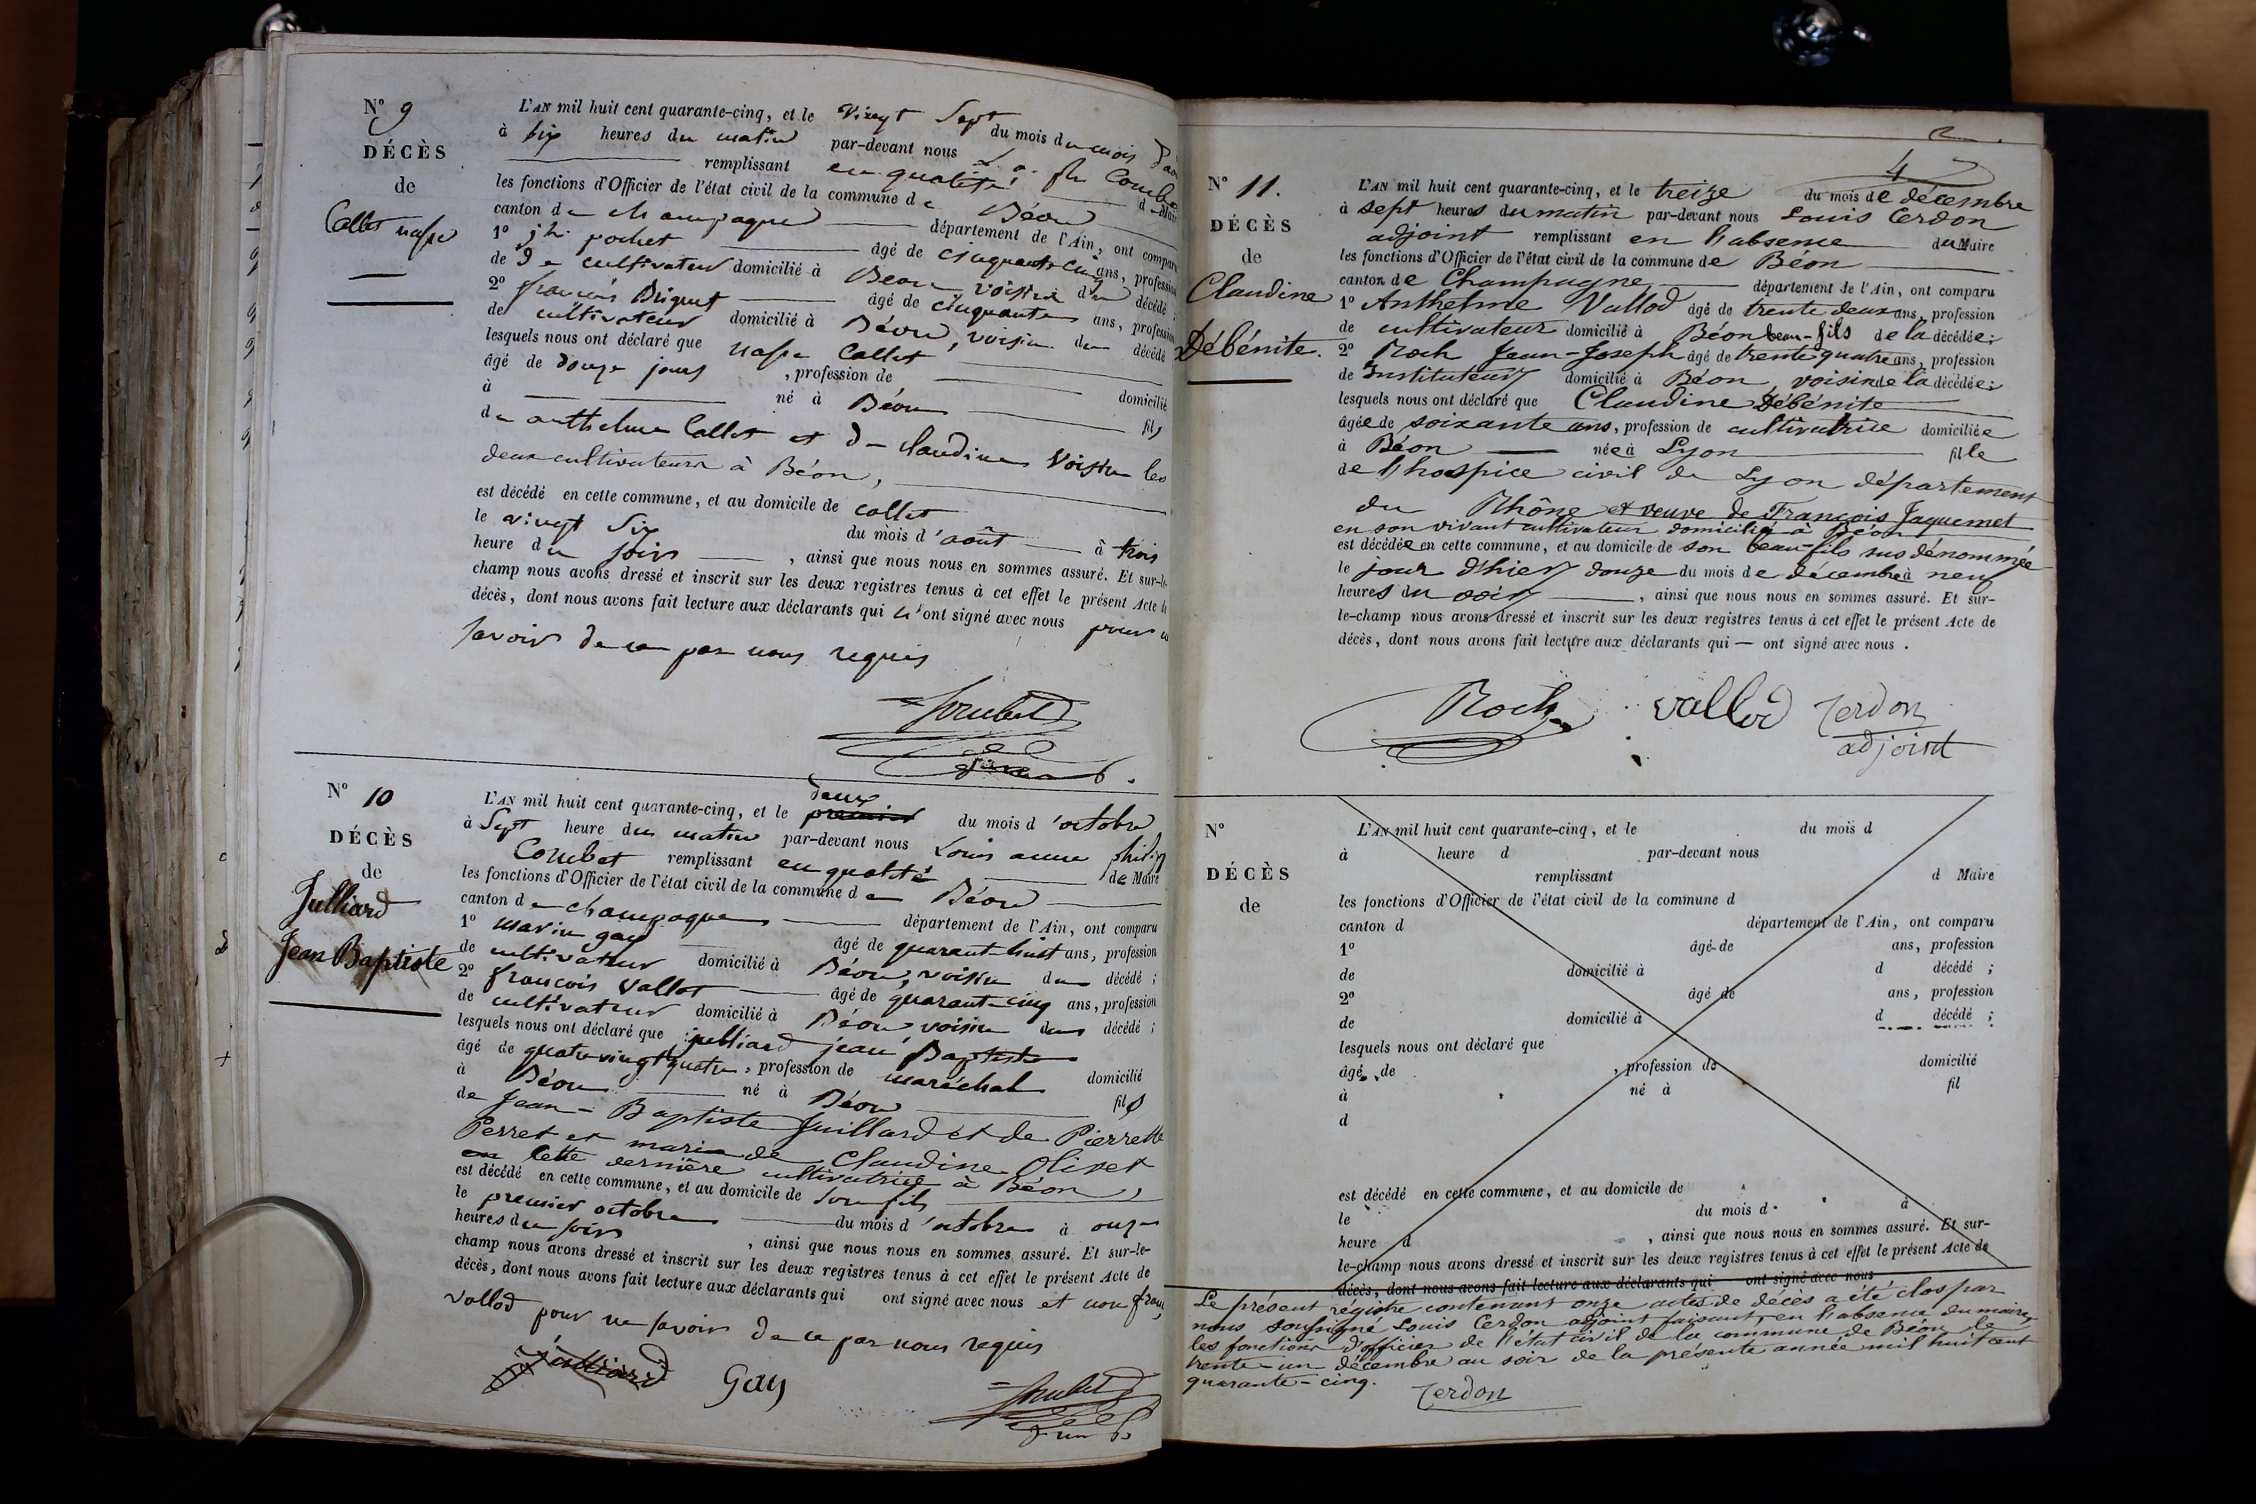 N° 9
DÉCÈS
de
Collet
L'AN mil huit cent quarante-cinq, et le vingt Sept du mois du mois
à six heures du matin par-devant nous L. a. ph. Combet
remplissant en qualité d Maire
les fonctions d'Officier de l'état civil de la commune de Béon
canton de champagne département de l'Ain, ont comparu
1° jh. pochet âgé de cinquante cinq ans, profession
de De cultivateur domicilié à Béon voisin du décédé ;
2° françois Briguet âgé de cinquante ans, profession
de cultivateur domicilié à Béon, voisin du décédé
lesquels nous ont déclaré que Collet
âgé de douze jours , profession de domicilié
à né à Béon fils
de anthelme Collet et de claudine Voisin les
deux cultivateurs à Béon,
est décédé en cette commune, et au domicile de collet
le vingt Six du mois d'août à trois
heure du soir , ainsi que nous nous en sommes assuré. Et sur-le-
champ nous avons dressé et inscrit sur les deux registres tenus à cet effet le présent Acte de
décès, dont nous avons fait lecture aux déclarants qui n'ont signé avec nous pour ne
savoir de ce par nous requis
Combet
N° 10
DÉCÈS
de
Julliard
Jean Baptiste
deux
L'AN mil huit cent quarante-cinq, et le premier du mois d'octobre
à Sept heure du matin par-devant nous Louis anne philip
Combet remplissant en qualité de Maire
les fonctions d'Officier de l'état civil de la commune de Béon
canton de champagne département de l'Ain, ont comparu
1° marin gay âgé de quarant-huit ans, profession
de cultivateur domicilié à Béon, voisin du décédé ;
2° francois Vallot âgé de quarant-cinq ans, profession
de cultivateur domicilié à Béon voisin du décédé ;
lesquels nous ont déclaré que julliard jean Baptiste
âgé de quatre vingt quatre , profession de maréchal domicilié
à Béon né à Béon fils
de Jean-Baptiste Juillard et de Pierrette
Perret et mari de Claudine Olivet
cette dernière cultivatrice à Béon,
est décédé en cette commune, et au domicile de Son fils
le premier octobre du mois d'octobre à onze
heures du soir , ainsi que nous nous en sommes assuré. Et sur-le-
champ nous avons dressé et inscrit sur les deux registres tenus à cet effet le présent Acte de
décès, dont nous avons fait lecture aux déclarants qui ont signé avec nous et non franc,
vallod pour ne savoir de ce par nous requis
Julliard Gay Combet
4
N° 11.
DÉCÈS
de
Claudine
Débénite.
L'AN mil huit cent quarante-cinq, et le treize du mois de décembre
à sept heures du matin par-devant nous Louis Cerdon
adjoint remplissant en l'absence du Maire
les fonctions d'Officier de l'état civil de la commune de Béon
canton de Champagne département de l'Ain, ont comparu
1° Anthelme Vallod âgé de trente deux ans, profession
de cultivateur domicilié à Béon beau-fils de la décédée ;
2° Roch Jean-Joseph âgé de trente quatre ans, profession
de Instituteur domicilié à Béon, voisin de la décédée ;
lesquels nous ont déclaré que Claudine Débénite
âgée de soixante ans, profession de cultivatrice domiciliée
à Béon née à Lyon fille
de l'hospice civil de Lyon département
du Rhône et veuve de François Jaquemet
en son vivant cultivateur domicilié à Béon
est décédée en cette commune, et au domicile de son beau-fils sus dénommée
le jour d'hier douze du mois de décembre à neuf
heures du soir , ainsi que nous nous en sommes assuré. Et sur-
le-champ nous avons dressé et inscrit sur les deux registres tenus à cet effet le présent Acte de
décès, dont nous avons fait lecture aux déclarants qui — ont signé avec nous .
Roch vallod Cerdon
adjoint
N°
DÉCÈS
de
L'AN mil huit cent quarante-cinq, et le du mois d
à heure d par-devant nous
remplissant d Maire
les fonctions d'Officier de l'état civil de la commune d
canton d département de l'Ain, ont comparu
1° âgé de ans, profession
de domicilié à d décédé ;
2° âgé de ans, profession
de domicilié à d décédé ;
lesquels nous ont déclaré que
âgé de , profession de domicilié
à né à fil
d
est décédé en cette commune, et au domicile de
le du mois d à
heure d , ainsi que nous nous en sommes assuré. Et sur-
le-champ nous avons dressé et inscrit sur les deux registres tenus à cet effet le présent Acte de
décès, dont nous avons fait lecture aux déclarants qui ont signé avec nous
Le présent registre contenant onze actes de décès a été clos par
nous soussigné Louis Cerdon adjoint faisant, en l'absence du maire,
les fonctions d'officier de l'état civil de la commune de Béon le
trente-un décembre au soir de la présente année mil huit cent
quarante-cinq. Cerdon